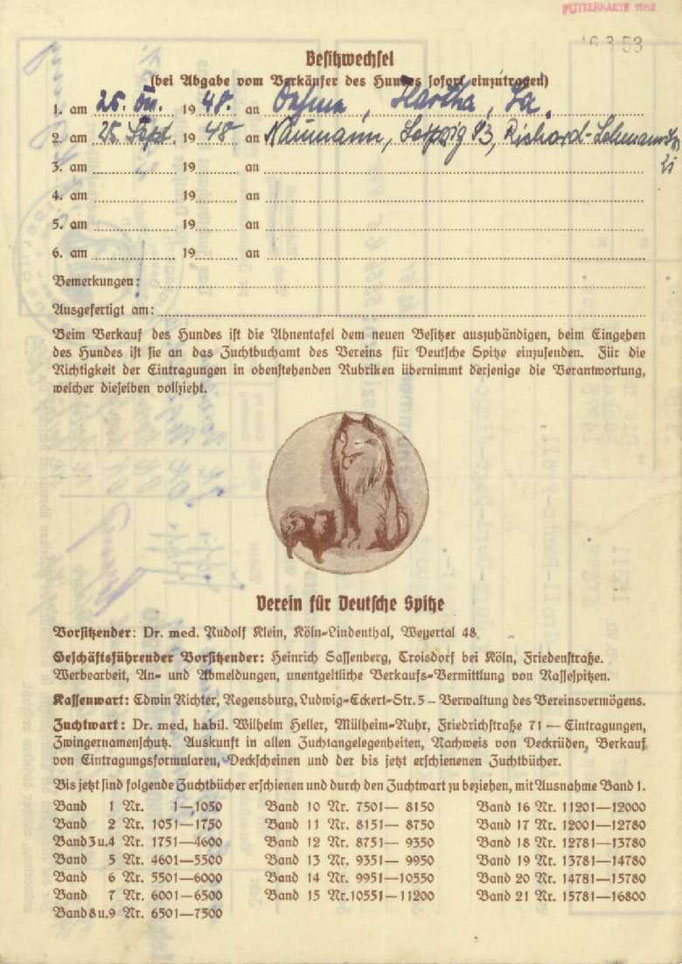 FUTTERKARTE
6.3.53
Besitzwechsel
(bei Abgabe vom Verkäufer des Hundes sofort einzutragen)
1. am 26. 1948. an Hartha, Sa.
2. am 25. Sept. 1948 an Naumann, Leipzig S3, Richard-Lehmannstr.
3. am 19 an
4. am 19 an
5. am 19 an
6. am 19 an
Bemerkungen:
Ausgefertigt am:
Beim Verkauf des Hundes ist die Ahnentafel dem neuen Besitzer auszuhändigen, beim Eingehen
des Hundes ist sie an das Zuchtbuchamt des Vereins für Deutsche Spitze einzusenden. Für die
Richtigkeit der Eintragungen in obenstehenden Rubriken übernimmt derjenige die Verantwortung,
welcher dieselben vollzieht.
Verein für Deutsche Spitze
Vorsitzender: Dr. med. Rudolf Klein, Köln-Lindenthal, Weyertal 48.
Geschäftsführender Vorsitzender: Heinrich Sassenberg, Troisdorf bei Köln, Friedenstraße.
Werbearbeit, An- und Abmeldungen, unentgeltliche Verkaufs-Vermittlung von Rassespitzen.
Kassenwart: Edwin Richter, Regensburg, Ludwig-Eckert-Str. 5 — Verwaltung des Vereinsvermögens.
Zuchtwart: Dr. med. habil. Wilhelm Heller, Mülheim-Ruhr, Friedrichstraße 71 — Eintragungen,
Zwingernamenschutz. Auskunft in allen Zuchtangelegenheiten, Nachweis von Deckrüden, Verkauf
von Eintragungsformularen, Deckscheinen und der bis jetzt erschienenen Zuchtbücher.
Bis jetzt sind folgende Zuchtbücher erschienen und durch den Zuchtwart zu beziehen, mit Ausnahme Band 1.
Band 1 Nr. 1—1050
Band 2 Nr. 1051—1750
Band 3 u. 4 Nr. 1751—4600
Band 5 Nr. 4601—5500
Band 6 Nr. 5501—6000
Band 7 Nr. 6001—6500
Band 8 u. 9 Nr. 6501—7500
Band 10 Nr. 7501— 8150
Band 11 Nr. 8151— 8750
Band 12 Nr. 8751— 9350
Band 13 Nr. 9351— 9950
Band 14 Nr. 9951—10550
Band 15 Nr. 10551—11200
Band 16 Nr. 11201—12000
Band 17 Nr. 12001—12780
Band 18 Nr. 12781—13780
Band 19 Nr. 13781—14780
Band 20 Nr. 14781—15780
Band 21 Nr. 15781—16800